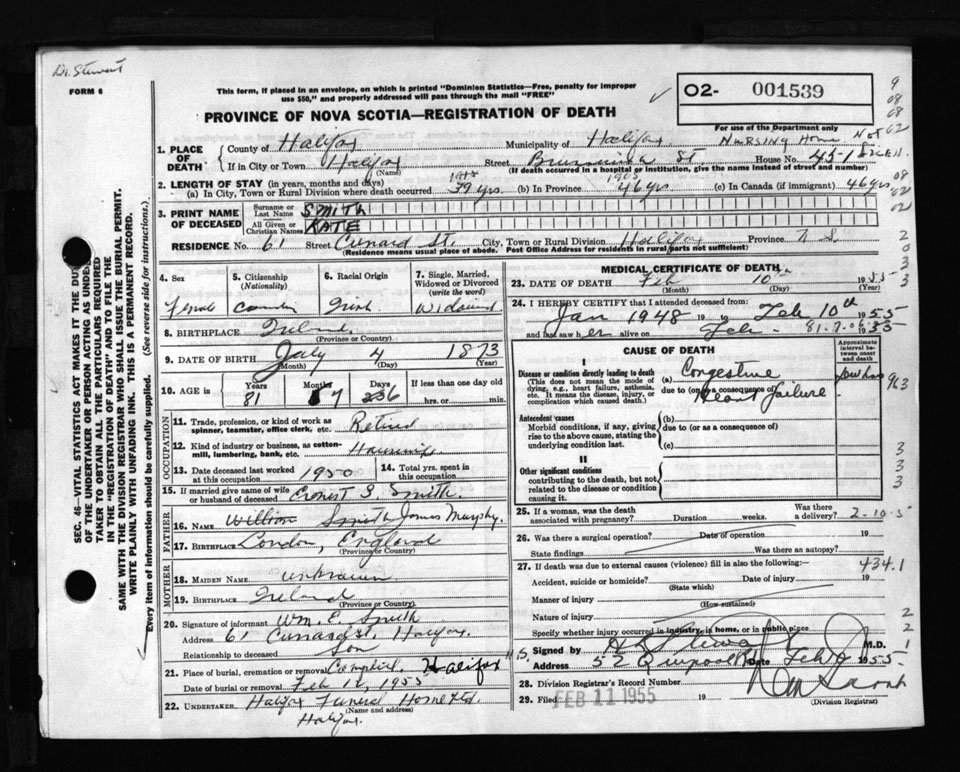 Dr. Stewart
FORM 6
This form, if placed in an envelope, on which is printed "Dominion Statistics—Free, penalty for improper
use $50," and properly addressed will pass through the mail "FREE"
PROVINCE OF NOVA SCOTIA—REGISTRATION OF DEATH
02- 001539
For use of the Department only
Nursing Home Not
1. PLACE OF DEATH
County of Halifax Municipality of Halifax
If in City or Town Halifax Street Brunswick St. House No. 451
(Name) (If death occurred in a hospital or institution, give the name instead of street and number)
2. LENGTH OF STAY (in years, months and days)
(a) In City, Town or Rural Division where death occurred 39 yrs. (b) In Province 46 yrs (c) In Canada (if immigrant) 46 yrs
3. PRINT NAME OF DECEASED
Surname or Last Name SMITH
All Given or Christian Names KATE
RESIDENCE No. 61 Street Cunard St. City, Town or Rural Division Halifax Province N.S.
(Residence means usual place of abode. Post Office Address for residents in rural parts not sufficient)
4. Sex
5. Citizenship (Nationality)
6. Racial Origin
7. Single, Married, Widowed or Divorced (write the word)
Female Irish Widowed
8. BIRTHPLACE Ireland
(Province or Country)
9. DATE OF BIRTH July 4 1873
(Month) (Day) (Year)
10. AGE in Years Months Days If less than one day old
81 7 6 hrs. or min.
11. Trade, profession, or kind of work as spinner, teamster, office clerk, etc. Retired
12. Kind of industry or business, as cotton-mill, lumbering, bank, etc.
13. Date deceased last worked at this occupation 1950
14. Total yrs. spent in this occupation
15. If married give name of wife or husband of deceased Ernest S. Smith.
FATHER
16. NAME William Smith James Murphy.
17. BIRTHPLACE London, England
(Province or Country)
MOTHER
18. MAIDEN NAME unknown
19. BIRTHPLACE Ireland
(Province or Country)
20. Signature of informant Wm. E. Smith
Address 61 Cunard St. Halifax.
Relationship to deceased Son
21. Place of burial, cremation or removal Halifax N.S.
Date of burial or removal Feb 12, 1955
22. UNDERTAKER Halifax Funeral Home Ltd.
(Name and address)
Halifax.
MEDICAL CERTIFICATE OF DEATH
23. DATE OF DEATH Feb 10th 1955
(Month) (Day) (Year)
24. I HEREBY CERTIFY that I attended deceased from:
Jan 1948 to Feb 10th 1955
and last saw her alive on Feb. 81.7.06 1955
CAUSE OF DEATH
Approximate interval between onset and death
I
Disease or condition directly leading to death (a) Congestive
(This does not mean the mode of dying, e.g., heart failure, asthenia, etc. It means the disease, injury, or complication which caused death.)
due to (or as a consequence of) Heart failure
963
Antecedent causes
Morbid conditions, if any, giving rise to the above cause, stating the underlying condition last.
(b)
due to (or as a consequence of)
(c)
II
Other significant conditions
contributing to the death, but not related to the disease or condition causing it.
25. If a woman, was the death associated with pregnancy? Duration weeks. Was there a delivery? 2-10-5
26. Was there a surgical operation? Date of operation 19
State findings Was there an autopsy?
27. If death was due to external causes (violence) fill in also the following:— 434.1
Accident, suicide or homicide? Date of injury 19
(State which)
Manner of injury
(How sustained)
Nature of injury
Specify whether injury occurred in industry, in home, or in public place
Signed by M.D.
Address 52 Quinpool Rd Date Feb 1955
28. Division Registrar's Record Number
29. Filed FEB 11 1955 19
(Division Registrar)
SEC. 46—VITAL STATISTICS ACT MAKES IT THE DUTY
OF THE UNDERTAKER OR PERSON ACTING AS UNDERTAKER
TO OBTAIN ALL THE PARTICULARS REQUIRED
IN THE "REGISTRATION OF DEATH" AND TO FILE THE
SAME WITH THE DIVISION REGISTRAR WHO SHALL ISSUE THE BURIAL PERMIT.
WRITE PLAINLY WITH UNFADING INK. THIS IS A PERMANENT RECORD.
Every item of information should be carefully supplied. (See reverse side for instructions.)